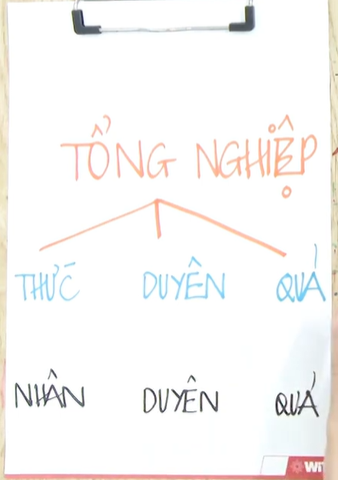 TỔNG NGHIỆP
THỨC DUYÊN QUẢ
NHÂN DUYÊN QUẢ